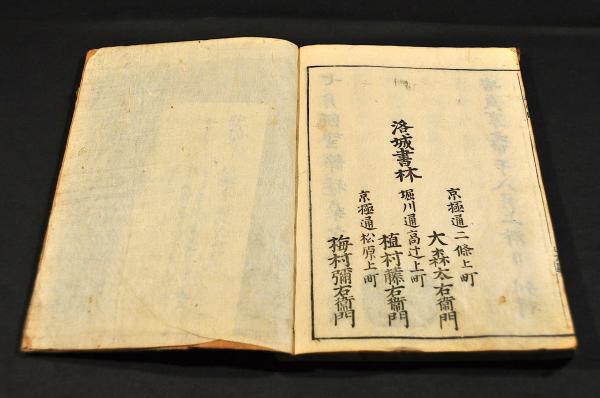 京極通二條上町
大森太右衞門
堀川通高辻上町
植村藤右衞門
京極通松原上町
梅村彌右衞門
洛城書林